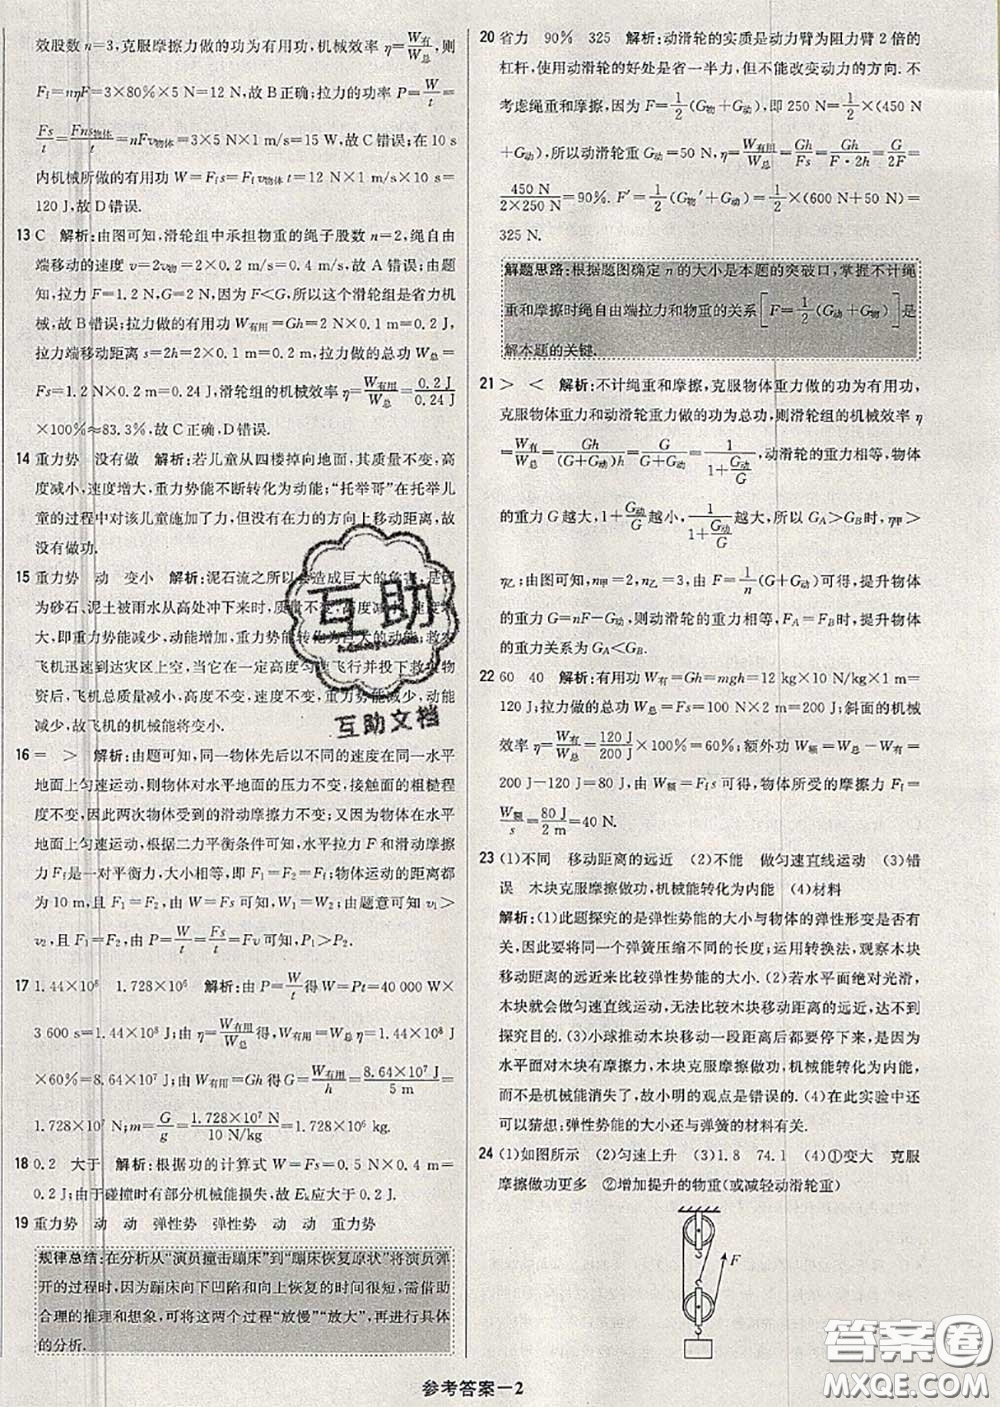 效股数 n=3,克服摩擦力做的功为有用功,机械效率 η=W有/W总,则
Ff=nηF=3×80%×5 N=12 N,故 B 正确;拉力的功率 P=W/t=
Fs/t=Fns物体/t=nFv物体=3×5 N×1 m/s=15 W,故 C 错误;在 10 s
内机械所做的有用功 W=Ffs=Ffv物体t=12 N×1 m/s×10 s=
120 J,故 D 错误.
13 C 解析:由图可知,滑轮组中承担物重的绳子股数 n=2,绳自由
端移动的速度 v=2v物=2×0.1 m/s=0.2 m/s,故 A 错误;由图
知,拉力 F=1.2 N,因为 F<G,所以这个滑轮组是省力机
械,故 B 错误;拉力做的有用功 W有用=Gh=2 N×0.1 m=0.2 J,
拉力端移动距离 s=2h=2×0.1 m=0.2 m,拉力做的总功 W总=
Fs=1.2 N×0.2 m=0.24 J,滑轮组的机械效率 η=W有用/W总=0.2 J/0.24 J
×100%≈83.3%,故 C 正确,D 错误.
14 重力势 没有做 解析:若儿童从四楼掉向地面,其质量不变,高
度减小,速度增大,重力势能不断转化为动能;“托举哥”在托举儿
童的过程中对该儿童施加了力,但没有在力的方向上移动距离,故
没有做功.
15 重力势 动 变小 解析:泥石流之所以会造成巨大的危害,是因
为砂石、泥土被雨水从高处冲下来时,质量不变,高度减小,速度增
大,即重力势能减少,动能增加,重力势能转化为巨大的动能;救灾
飞机迅速到达灾区上空,当它在一定高度匀速飞行并投下救灾物
资后,飞机总质量减小,高度不变,速度不变,重力势能减少,动能
减少,故飞机的机械能将变小.
16 = > 解析:由题可知,同一物体先后以不同的速度在同一水平
地面上匀速运动,则物体对水平地面的压力不变,接触面的粗糙程
度不变,因此两次物体受到的滑动摩擦力不变;又因为物体在水平
地面上匀速运动,根据二力平衡条件可知,水平拉力 F 和滑动摩擦
力 Ff是一对平衡力,大小相等,即 F=Ff;物体运动的距离都
为 10 m,且 F1=F2,由 W=Fs 可知,W1=W2;由题意可知 v1>
v2,且 F1=F2,由 P=W/t=Fs/t=Fv 可知,P1>P2.
17 1.44×10⁸ 1.728×10⁶ 解析:由 P=W/t得 W=Pt=40 000 W×
3 600 s=1.44×10⁸ J;由 η=W有用/W总得,W有用=W总η=1.44×10⁸ J
×60%=8.64×10⁷ J,由 W有用=Gh 得 G=W有用/h=8.64×10⁷ J/5 m=
1.728×10⁷ N;m=G/g=1.728×10⁷ N/10 N/kg=1.728×10⁶ kg.
18 0.2 大于 解析:根据功的计算式 W=Fs=0.5 N×0.4 m=
0.2 J;由于碰撞时有部分机械能损失,故 Ek应大于 0.2 J.
19 重力势 动 动 弹性势 弹性势 动 动 重力势
规律总结:在分析从“演员撞击蹦床”到“蹦床恢复原状”将演员弹
开的过程时,因为蹦床向下凹陷和向上恢复的时间很短,需借助
合理的推理和想象,可将这两个过程“放慢”“放大”,再进行具体
的分析.
20 省力 90% 325 解析:动滑轮的实质是动力臂为阻力臂 2 倍的
杠杆,使用动滑轮的好处是省一半力,但不能改变动力的方向.不
考虑绳重和摩擦,因为 F=1/2(G物+G动),即 250 N=1/2×(450 N
+G动),所以动滑轮重 G动=50 N,机械效率 η=W有用/W总=Gh/Fs=Gh/F·2h=G/2F=
450 N/2×250 N=90%. F′=1/2(G物′+G动)=1/2×(600 N+50 N)=
325 N.
解题思路:根据题图确定 n 的大小是本题的突破口,掌握不计绳
重和摩擦时绳自由端拉力和物重的关系[F=1/2(G动+G物)]是
解本题的关键.
21 > < 解析:不计绳重和摩擦,克服物体重力做的功为有用功,
克服物体重力和动滑轮重力做的功为总功,则滑轮组的机械效率 η
=W有/W总=Gh/(G+G动)h=G/G+G动=1/1+G动/G,动滑轮的重力相等,物体
的重力 G 越大,1+G动/G越小,1/1+G动/G越大,所以 GA>GB时,η甲>
η乙;由图可知,n甲=2,n乙=3,由 F=1/n(G+G动)可得,提升物体
的重力 G=nF-G动,则动滑轮的重力相等,FA=FB时,提升物体
的重力关系为 GA<GB.
22 60 40 解析:有用功 W有=Gh=mgh=12 kg×10 N/kg×1 m=
120 J,拉力做的总功 W总=Fs=100 N×2 m=200 J;斜面的机械
效率 η=W有/W总=120 J/200 J×100%=60%;额外功 W额=W总-W有=
200 J-120 J=80 J,由 W额=Ffs 可得,物体所受的摩擦力 Ff=
W额/s=80 J/2 m=40 N.
23 (1)不同 移动距离的远近 (2)不能 做匀速直线运动 (3)错
误 木块克服摩擦做功,机械能转化为内能 (4)材料
解析:(1)此题探究的是弹性势能的大小与物体的弹性形变是否有
关,因此要将同一个弹簧压缩不同的长度;运用转换法,观察木块
移动距离的远近来比较弹性势能的大小.(2)若水平面绝对光滑,
木块就会做匀速直线运动,无法比较木块移动距离的远近,达不到
探究目的.(3)小球推动木块移动一段距离后都要停下来,是因为
水平面对木块有摩擦力,木块克服摩擦做功,机械能转化为内能,
而不是机械能消失了,故小明的观点是错误的.(4)在此实验中还
可以猜想:弹性势能的大小还与弹簧的材料有关.
24 (1)如图所示 (2)匀速上升 (3)1.8 74.1 (4)①变大 克服
摩擦做功更多 ②增加提升的物重(或减轻动滑轮重)
F
互助
互助文档
参考答案—2
答案圈
MXQE.COM